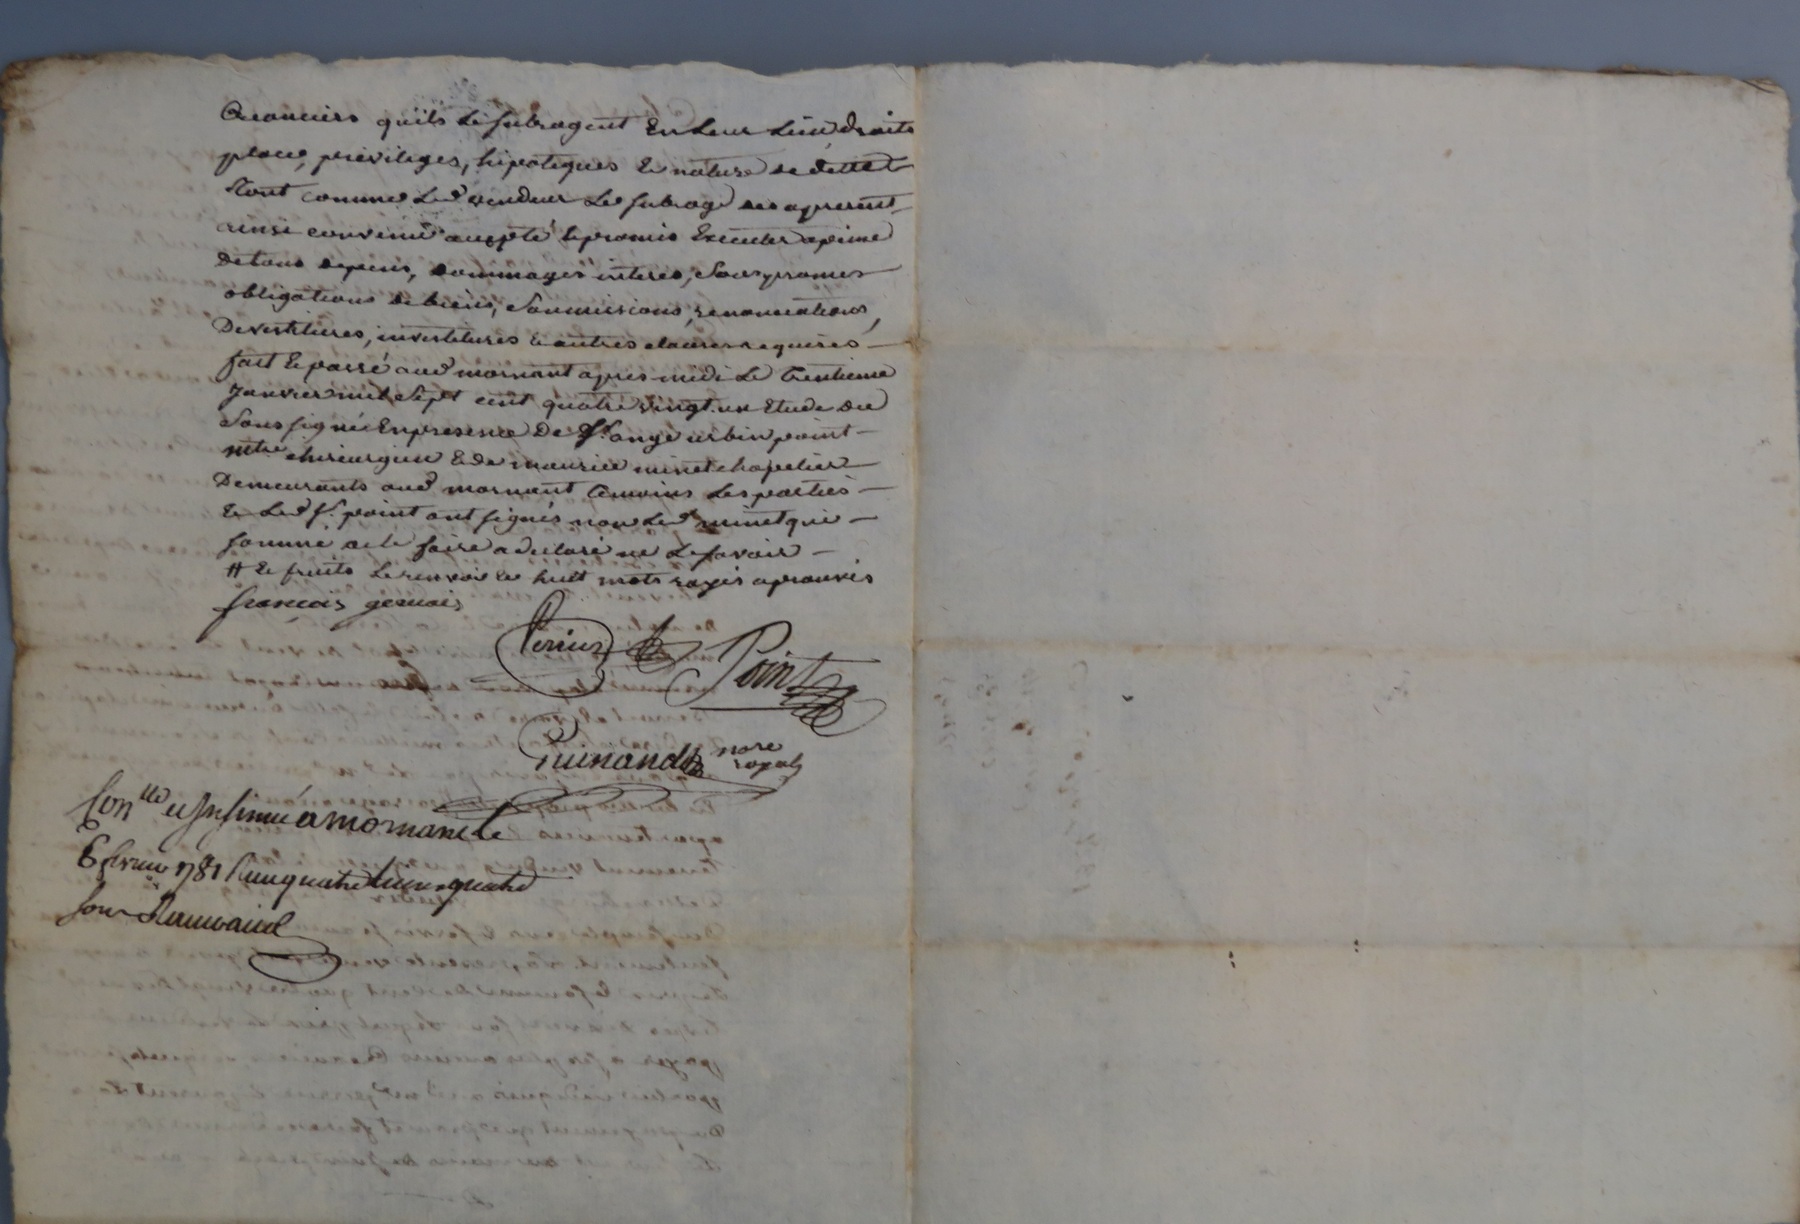 Creanciers qu'ils le subrogent En Leur Lieu, droits
place, privileges, hipoteques & nature de dettet
tout comme Led vendeur Le subroge des apresent
ainsi convenu accepté & promis Executer apeine
de tous depens, dommages interes, Sous promes
obligations de biens, Soumissions, renonciations,
Devestitures, investitures & autres clauses requises
fait & passé aud mornant apres midi Le trentieme
Janvier mil Sept cent quatre vingt un Etude du
Soussigné En presence De Sr. ange urbin point
mtre chirurgien & de maurice minet chapelier
Demeurants aud mornant temoins Les parties
& Led Sr. point ont signés non Led minet qui
sommé de le faire a declaré ne Le savoir
# & fruits Le renvoi & huit mots rayés aprouvés
françois gervais
Point
Guinand nore
royal
Con lle et Insinué a mornant le
6 fevrier 1781 quatre livres quatre